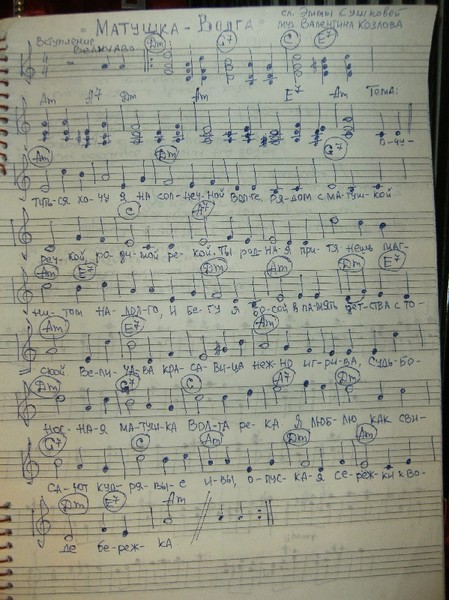 Матушка - Волга
сл. Эммы Сушковой
муз. Валентина Козлова
Вступление
Dm G7 C E7
Am A7 Dm Am E7 Am Тема:
О-чу-
Am Dm G7
титься хо-чу я на сол-неч-ной Вол-ге, ря-дом с ма-туш-кой
C A7
реч-кой, ро-ди-мой ре-кой. Ты род-на-я при-тя-нешь маг-
Am E7 Dm Am Dm E7
ни-том на-дол-го, и бе-гу я бо-сой в память дет-ства с то-
Am E7 Am
ской Вели-ча-ва кра-са-ви-ца неж-но иг-ри-ва, судь-бо-
Dm G7 C A7 Dm
нос-на-я ма-туш-ка Вол-га ре-ка Я люб-лю как сви-
G7 C Am Dm Am
са-ют куд-ря-вы-е и-вы, о-пус-ка-я се-реж-ки к во-
Dm E7 Am
де бе-реж-ка